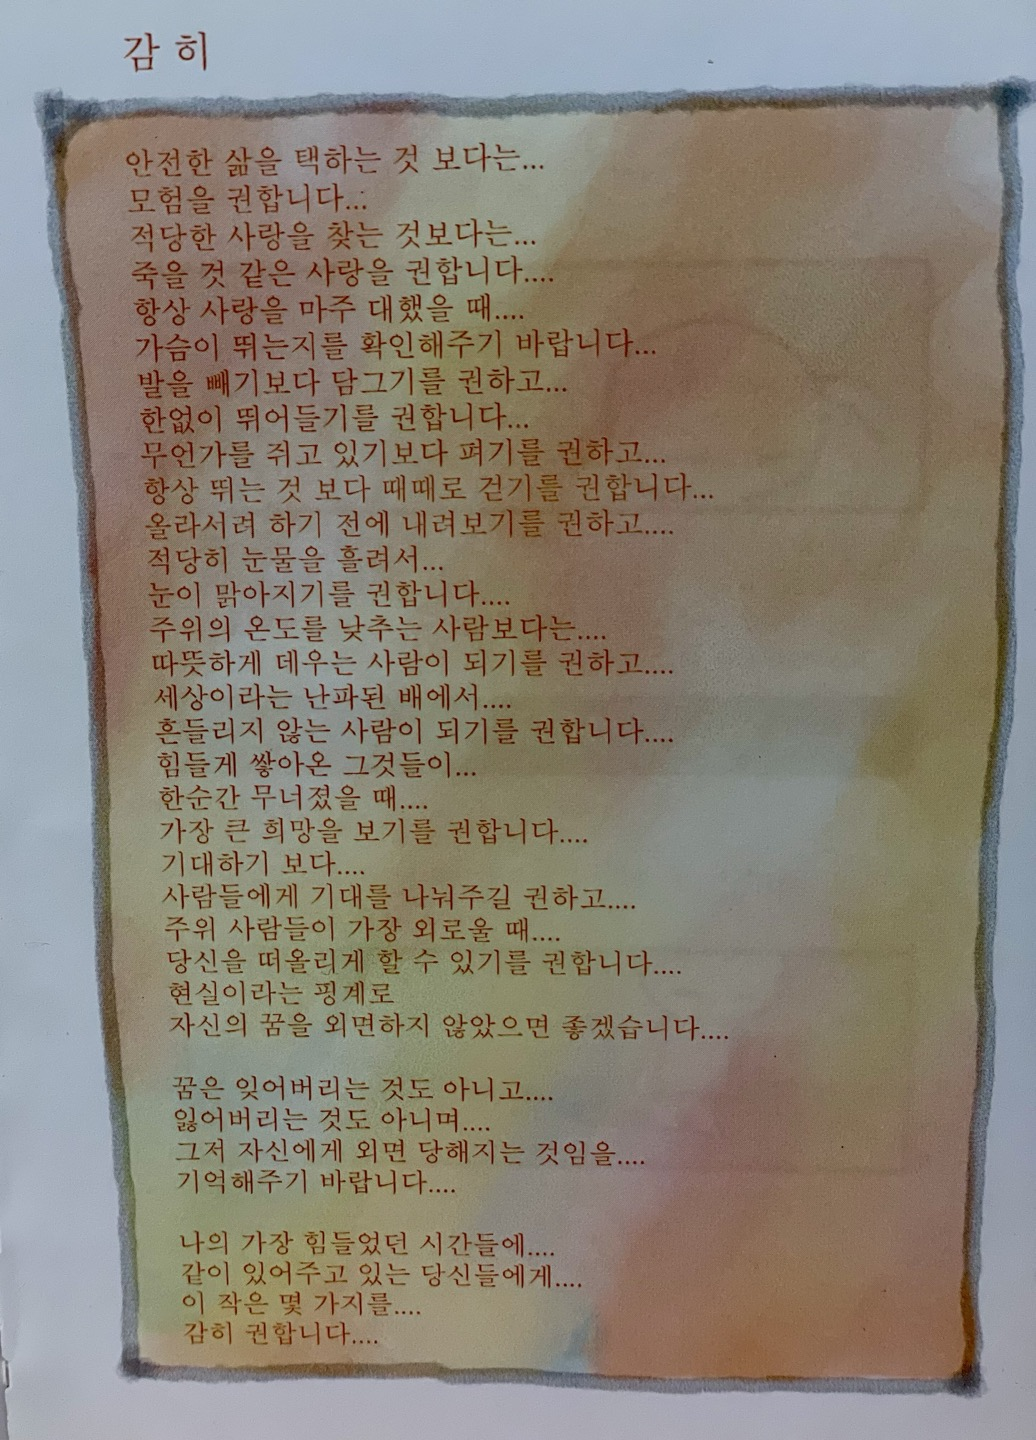 감 히
안전한 삶을 택하는 것 보다는...
모험을 권합니다...
적당한 사랑을 찾는 것보다는...
죽을 것 같은 사랑을 권합니다....
항상 사랑을 마주 대했을 때....
가슴이 뛰는지를 확인해주기 바랍니다...
발을 빼기보다 담그기를 권하고...
한없이 뛰어들기를 권합니다...
무언가를 쥐고 있기보다 펴기를 권하고...
항상 뛰는 것 보다 때때로 걷기를 권합니다...
올라서려 하기 전에 내려보기를 권하고....
적당히 눈물을 흘려서...
눈이 맑아지기를 권합니다....
주위의 온도를 낮추는 사람보다는....
따뜻하게 데우는 사람이 되기를 권하고....
세상이라는 난파된 배에서....
흔들리지 않는 사람이 되기를 권합니다....
힘들게 쌓아온 그것들이...
한순간 무너졌을 때....
가장 큰 희망을 보기를 권합니다....
기대하기 보다....
사람들에게 기대를 나눠주길 권하고....
주위 사람들이 가장 외로울 때....
당신을 떠올리게 할 수 있기를 권합니다....
현실이라는 핑계로
자신의 꿈을 외면하지 않았으면 좋겠습니다....
꿈은 잊어버리는 것도 아니고....
잃어버리는 것도 아니며....
그저 자신에게 외면 당해지는 것임을....
기억해주기 바랍니다....
나의 가장 힘들었던 시간들에....
같이 있어주고 있는 당신들에게....
이 작은 몇 가지를....
감히 권합니다....